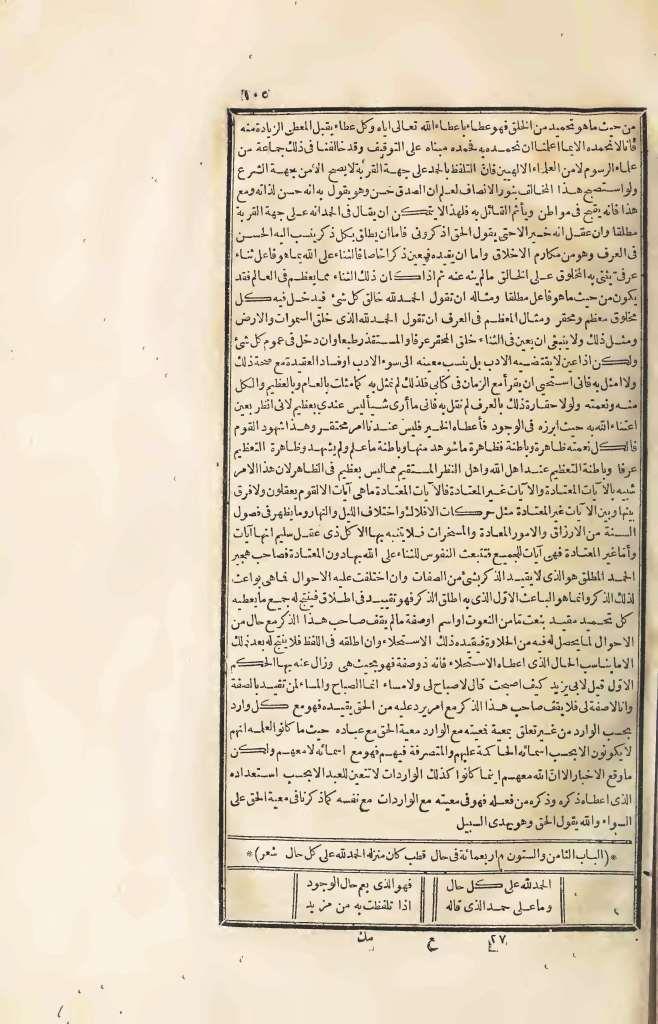 ١٠٥
من حيث ما هو تحميد من الخلق فهو عطاء باعطاء الله تعالى اياه وكل عطاء يقبل المعطى الزيادة منه
فانا لا نحمده الا بما اعلمنا ان نحمده به فحمده مبناه على التوقيف وقد خالفنا فى ذلك جماعة من
علماء الرسوم لا من العلماء الالهيين فان التلفظ بالحمد على جهة القربة لا يصح الا من جهة الشرع
ولو استصبح هذا المخالف بنور الانصاف لعلم ان الصدق حسن وهو يقول به انه حسن لذاته ومع
هذا فانه يقبح فى مواطن ويأثم القائل به فلهذا لا يتمكن ان يقال فى الحمد انه على جهة القربة
مطلقا وان عقل انه خير الا حتى يقول الحق اذكرونى فاما ان يطلق بكل ذكر ينسب اليه الحسن
فى العرف وهو من مكارم الاخلاق واما ان يقيده فيعين ذكرا خاصا فالثناء على الله بما هو فاعل ثناء
عرفى يثنى به المخلوق على الخالق مالم ينه عنه ثم اذا كان ذلك الثناء مما يعظم فى العالم فقد
يكون من حيث ما هو فاعل مطلقا ومثاله ان تقول الحمد لله خالق كل شئ فيدخل فيه كل
مخلوق معظم ومحقر ومثال المعظم فى العرف ان تقول الحمد لله الذى خلق السموات والارض
ومثل ذلك ولا ينبغى ان يعين فى الثناء خلق المحقر عرفا والمستقذر طبعا وان دخل فى عموم كل شئ
ولكن اذا عين لا يقتضيه الادب بل ينسب معينه الى سوء الادب او فساد العقيدة مع صحة ذلك
ولا امثل به فانى استحيى ان يقرأ مع الزمان فى كتابى فلذلك لم نمثل به كما مثلت بالعام وبالعظيم والكل
منه ونعمته ولولا حقارة ذلك بالعرف لم نقل به فانى ما أرى شيأ ليس عندى بعظيم لانى انظر بعين
اعتناء الله به حيث ابرزه فى الوجود فأعطاه الخير فليس عندنا امر محتقر وهذا شهود القوم
فالكل نعمته ظاهرة وباطنة فظاهرة ما شوهد منها وباطنة ما علم ولم يشهد وظاهرة التعظيم
عرفا وباطنة التعظيم عند اهل الله واهل النظر المستقيم مما ليس بعظيم فى الظاهر لان هذا الامر
شبيه بالآيات المعتادة والآيات غير المعتادة فالآيات المعتادة ما هى آيات الا لقوم يعقلون ولا فرق
بينها وبين الآيات غير المعتادة مثل حركات الافلاك واختلاف الليل والنهار وما يظهر فى فصول
السنة من الارزاق والامور المعتادة والمسخرات فلا يتنبه بها الا كل ذى عقل سليم انها آيات
وأما غير المعتادة فهى آيات للجميع فتنبعث النفوس للثناء على الله بها دون المعتادة فصاحب هجير
الحمد المطلق هو الذى لا يقيد الذكر بشئ من الصفات وان اختلفت عليه الاحوال فما هى بواعث
لذلك الذكر وانما هو الباعث الاول الذى به اطلق الذكر فهو تقييد فى اطلاق فينتج له جميع ما يعطيه
كل تحميد مقيد بنعت ما من النعوت او اسم او صفة مالم يقف صاحب هذا الذكر مع حال من
الاحوال لما يحصل له فيه من الحلاوة فيقيده ذلك الاستحلاء وان اطلقه فى اللفظ فلا ينتج له بعد ذلك
الا ما يناسب الحال الذى اعطاه الاستحلاء فانه ذو صفة فهو بحيث هى وزال عنه بها الحكم
الاول قيل لابى يزيد كيف اصبحت قال لا صباح لى ولا مساء انما الصباح والمساء لمن تقيد بالصفة
وانا لا صفة لى فلا يقف صاحب هذا الذكر مع امر يرد عليه من الحق يقيده فهو مع كل وارد
بحسب الوارد من غير تعلق بمعية فمعيته مع الوارد معية الحق مع عباده حيث ما كانوا لعلمه انهم
لا يكونون الا بحسب اسمائه الحاكمة عليهم والمتصرفة فيهم فهو مع اسمائه لا معهم ولكن
ما وقع الاخبار الا ان الله معهم اينما كانوا كذلك الواردات لا تتعين للعبد الا بحسب استعداده
الذى اعطاه ذكره وذكره من فعله فهو فى معيته مع الواردات مع نفسه كما ذكرنا فى معية الحق على
السواء والله يقول الحق وهو يهدى السبيل
*(الباب الثامن والستون واربعمائة فى حال قطب كان منزله الحمد لله على كل حال شعر)*
الحمد لله على كل حال فهو الذى يعم حال الوجود
وما على حمد الذى قاله اذا تلفظت به من مزيد
٢٧ ع مك